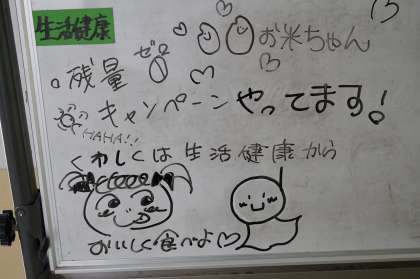 生活健康
お米ちゃん
残量ゼロ
キャンペーンやってます!
HAHA!!
くわしくは生活健康から
おいしく食べよ♡